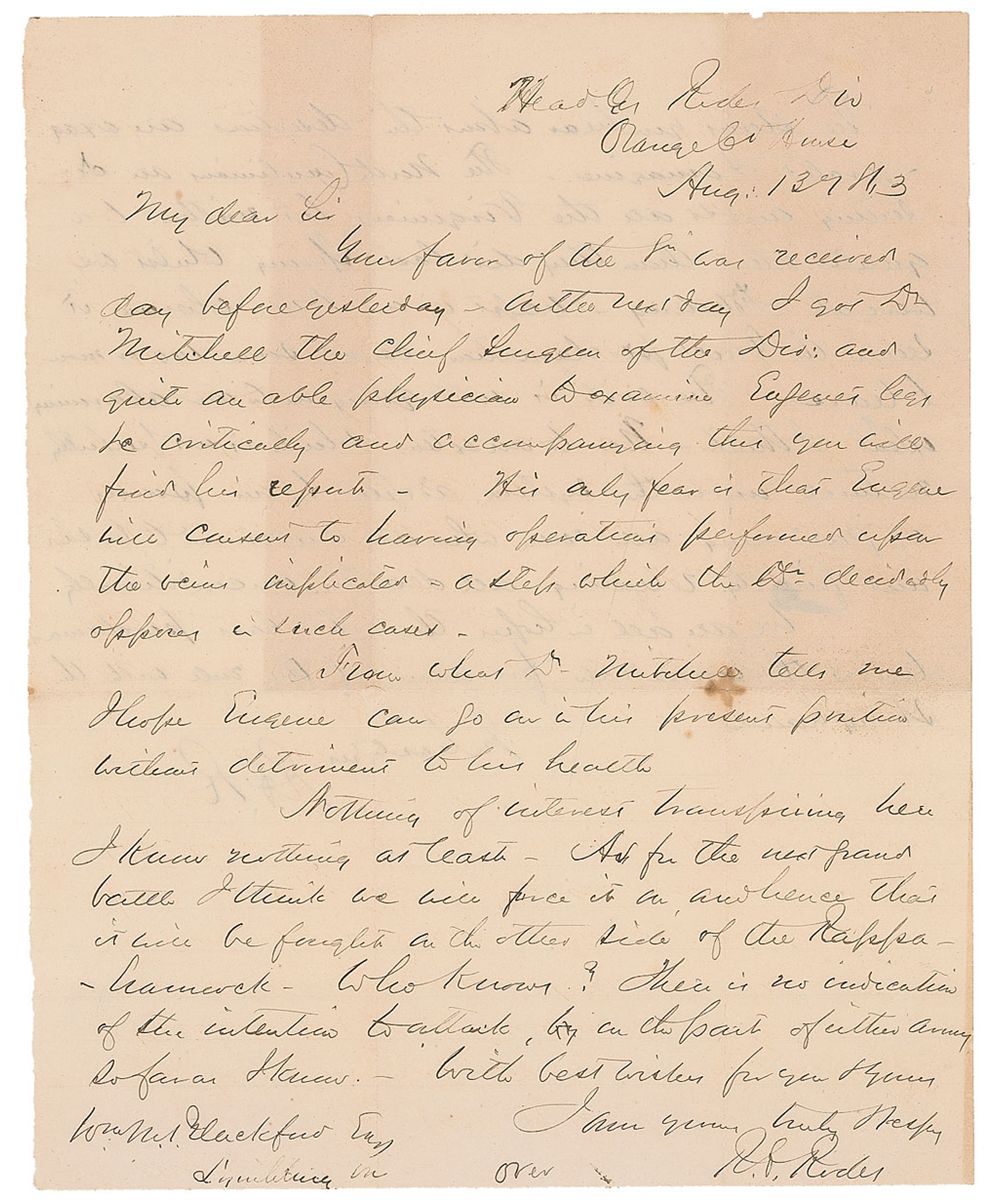 Head Qrs Rodes Div
Orange Ct House
Aug: 13th 63
My dear Sir
Your favor of the 8th was received
day before yesterday – on the next day I got Dr
Mitchell the chief Surgeon of the Div: and
quite an able physician to examine Eugenes legs
&c critically and accompanying this you will
find his report – His only fear is that Eugene
will consent to having operations performed upon
the veins implicated a step which the Dr decidedly
opposes in such cases –
From what Dr Mitchell tells me
I hope Eugene can go on in his present position
without detriment to his health
Nothing of interest transpiring here
I know nothing at least – As for the next grand
battle I think we will force it on, and hence that
it will be fought on the other side of the Rappa-
-hannock – Who knows? There is no indication
of the intention to attack, on the part of either army
so far as I know. – With best wishes for you & yours
I am yours truly & Respy
Wm M. Blackford Esq
R. E. Rodes
Lynchburg Va
over